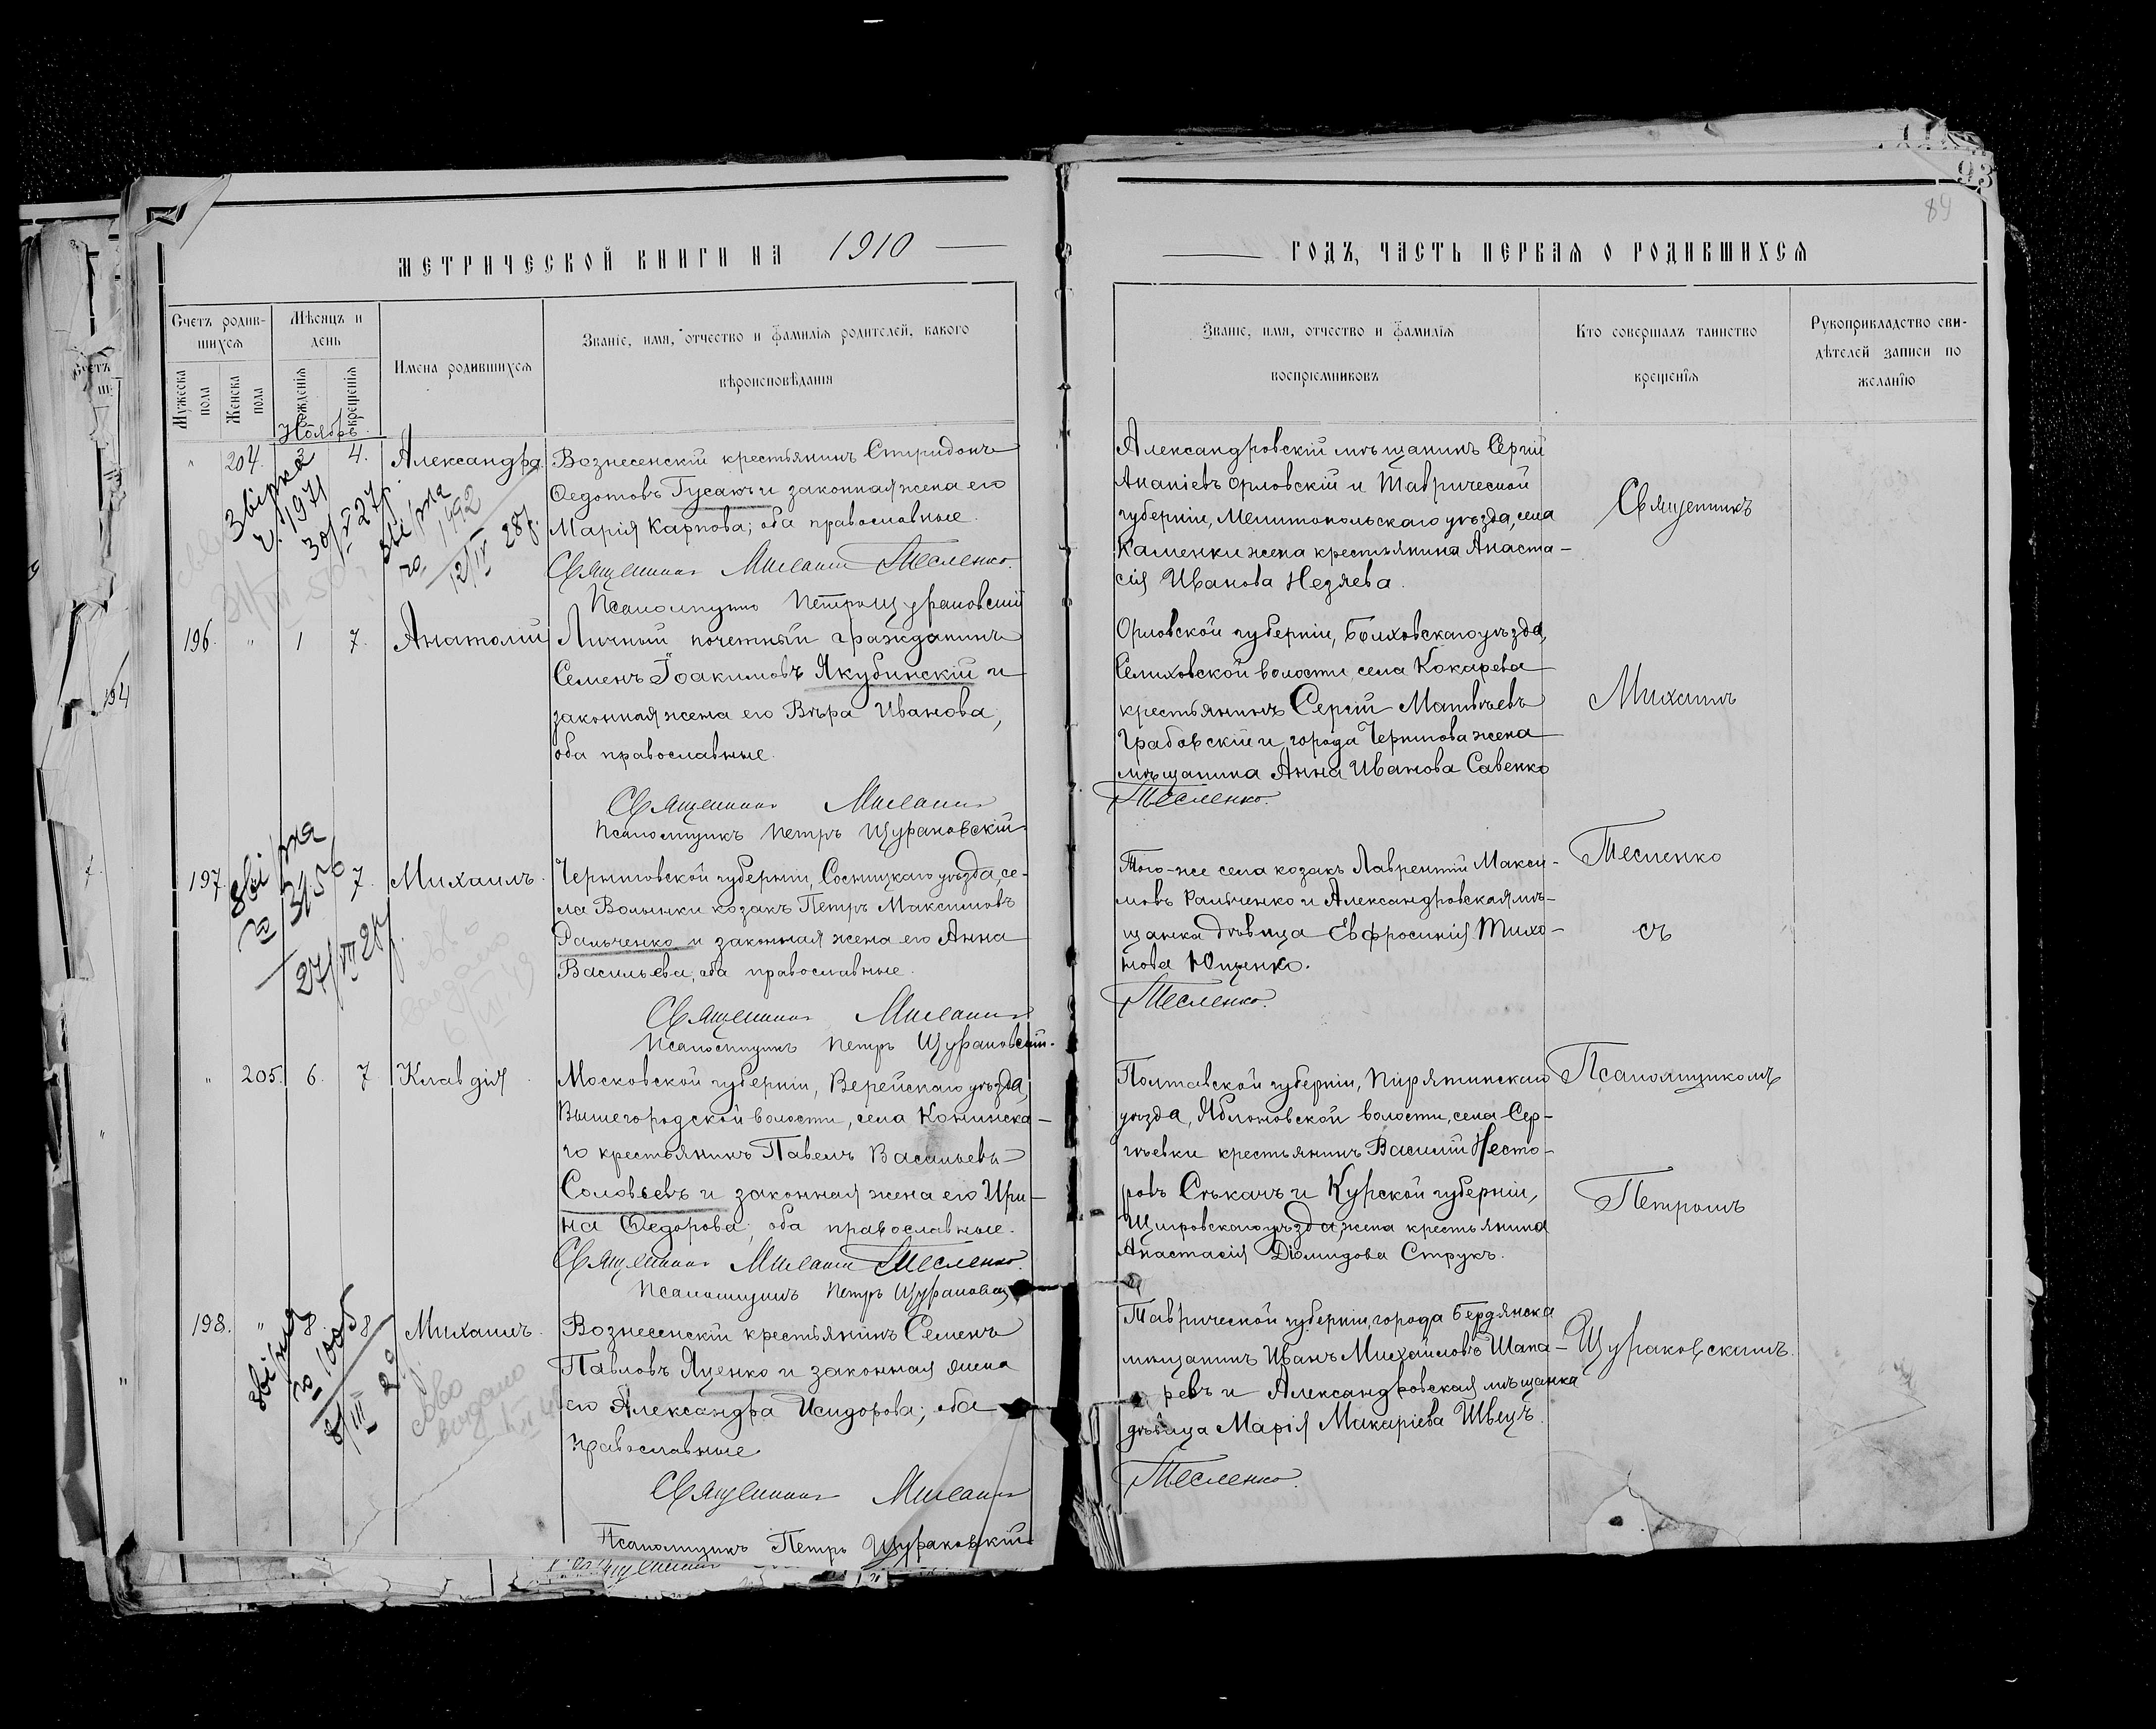 МЕТРИЧЕСКОЙ КНИГИ НА 1910
Счетъ родив-
шихся
Мѣсяцъ и
день
Имена родившихся
Званіе, имя, отчество и фамилія родителей, какого
вѣроисповѣданія
Мужеска
пола
Женска
пола
рожденія
крещенія
Ноябрь
" 204. 3 4. Александра
Вознесенскій крестьянинъ Спиридонъ
Ѳедотовъ Гусакъ и законная жена его
Марія Карпова; оба православные.
Священникъ Михаилъ Тесленко.
Псаломщикъ Петръ Щураковскій
звірка
1971
30/V 27р.
звірка
1492
12/IV 28р.
196. " 1 7. Анатолій
Личный почетный гражданинъ
Семенъ Іоакимовъ Якубинскій и
законная жена его Вѣра Иванова,
оба православные.
Священникъ Михаилъ
Псаломщикъ Петръ Щураковскій
197 7. Михаилъ.
Черниговской губерніи, Сосницкаго уѣзда, се-
ла Волынки козакъ Петръ Максимовъ
Ральченко и законная жена его Анна
Васильева, оба православные.
Священникъ Михаилъ
Псаломщикъ Петръ Щураковскій.
звірка
3156
27/VII 28р.
" 205. 6. 7 Клавдія
Московской губерніи, Верейскаго уѣзда,
Вышегородской волости, села Конинска-
го крестьянинъ Павелъ Васильевъ
Соловьевъ и законная жена его Ири-
на Ѳедорова; оба православные.
Священникъ Михаилъ Тесленко.
Псаломщикъ Петръ Щураковскій
198. " 8. 8 Михаилъ.
Вознесенскій крестьянинъ Семенъ
Павловъ Яценко и законная жена
его Александра Исидорова; оба
православные.
Священникъ Михаилъ
Псаломщикъ Петръ Щураковскій
звірка
1005
8/III 29
93
89
ГОДЪ, ЧАСТЬ ПЕРВАЯ О РОДИВШИХСЯ
Званіе, имя, отчество и фамилія
воспріемниковъ
Кто совершалъ таинство
крещенія
Рукоприкладство сви-
дѣтелей записи по
желанію
Александровскій мѣщанинъ Сергій
Ананіевъ Орловскій и Таврической
губерніи, Мелитопольскаго уѣзда, села
Каменки жена крестьянина Анаста-
сія Иванова Незяева.
Орловской губерніи, Болховскаго уѣзда,
Селиховской волости, села Кокарева
крестьянинъ Сергій Матвѣевъ
Грабовскій и города Чернигова жена
мѣщанина Анна Иванова Савенко
Тесленко.
Того-же села козакъ Лаврентій Макси-
мовъ Ральченко и Александровская мѣ-
щанка дѣвица Евфросинія Тихо-
нова Ющенко.
Тесленко.
Полтавской губерніи, Пирятинскаго
уѣзда, Яблоновской волости, села Сер-
гѣевки крестьянинъ Василій Несто-
ровъ Сѣкачъ и Курской губерніи,
Щигровскаго уѣзда, жена крестьянина
Анастасія Діомидова Струкъ.
Таврической губерніи, города Бердянска
мѣщанинъ Иванъ Михайловъ Шапа-
ревъ и Александровская мѣщанка
дѣвица Марія Макаріева Швецъ.
Тесленко.
Священникъ
Михаилъ
Тесленко
съ
Псаломщикомъ
Петромъ
Щураковскимъ.